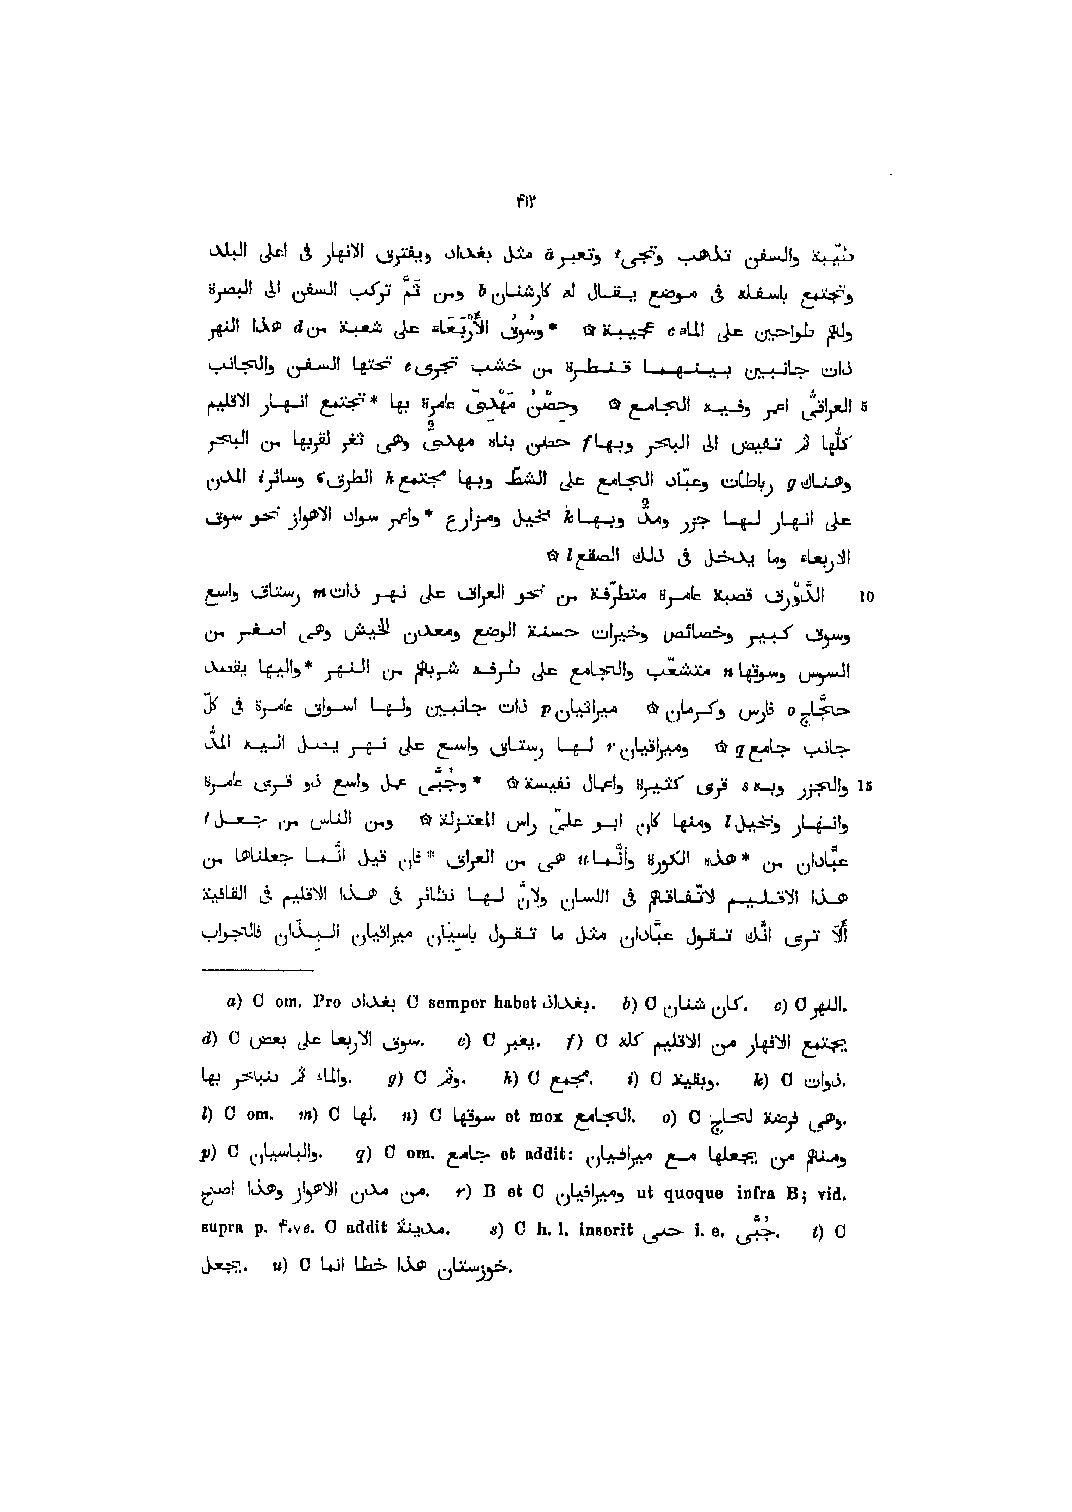 ٤١٢
طيّبة والسفن تذهب وتجىء وتعبر a مثل بغداد ويفترق الانهار فى اعلى البلد
وتجتمع باسفله فى موضع يقال له كارشنان b ومن ثَمَّ تركب السفن الى البصرة
ولهم طواحين على الماء c عجيبة ۞ *وسُوقُ الأَرْبَعَاء على شعبة من d هذا النهر
ذات جانبين بينهما قنطرة من خشب تجرى e تحتها السفن والجانب
5 العراقىُّ اعمر وفيه الجامع ۞ وحِصْنُ مَهْدِىّ عامرة بها *تجتمع انهار الاقليم
كلُّها ثم تفيض الى البحر وبها f حصن بناه مهدىٌّ وهى ثغر لقربها من البحر
وهناك g رباطات وعبّاد الجامع على الشطّ وبها مجتمع h الطرق ۞ وسائر i المدن
على انهار لها جزر ومدٌّ وبها k نخيل ومزارع *واعمر سواد الاهواز نحو سوق
الاربعاء وما يدخل فى ذلك الصقع l ۞
10 الدَّوْرَق قصبة عامرة متطرّفة من نحو العراق على نهر ذات m رستاق واسع
وسوق كبير وخصائص وخيرات حسنة الوضع ومعدن للخيش وهى اصغر من
السوس وسوقها n متشعّب والجامع على طرفه شربهم من النهر *واليها يقصد
حجَّاج o فارس وكرمان ۞ ميراقيان p ذات جانبين ولها اسواق عامرة فى كلّ
جانب جامع q ۞ وميراقيان r لها رستاق واسع على نهر يصل اليه المدُّ
15 والجزر وبه s قرى كثيرة واعمال نفيسة ۞ *وجُبَّى عمل واسع ذو قرى عامرة
وانهار ونخيل l ومنها كان ابو علىّ راس المعتزلة ۞ ومن الناس من جعل t
عبَّادان من *هذه الكورة وانَّما u هى من العراق *فان قيل انَّما جعلناها من
هذا الاقليم لاتّفاقهم فى اللسان ولانَّ لها نظائر فى هذا الاقليم فى القافية
أَلَا ترى انَّك تقول عبَّادان مثل ما تقول باسِيَان ميراقيان البيذَان فالجواب
a) C om. Pro بغداد C semper habet بغداذ. b) C كان شنان. c) C النهر.
d) C سوق الاربعا على بعض. e) C يعبر. f) C يجتمع الانهار من الاقليم كله
والماء ثم يتباخر بها. g) C وثم. h) C مجمع. i) C وبقية. k) C ذوات.
l) C om. m) C لها. n) C سوقها et mox الجامع. o) C وهى فرضة لحاج.
p) C والباسيان. q) C om. جامع et addit: ومنهم من يجعلها مع ميراقيان
من مدن الاهواز وهذا اصح. r) B et C وميرافيان ut quoque infra B; vid.
supra p. ٤٠٧e. C addit مدينة. s) C h. l. inserit حبى i. e. جُبَّى. t) C
يجعل. u) C خوزستان هذا خطا انما.